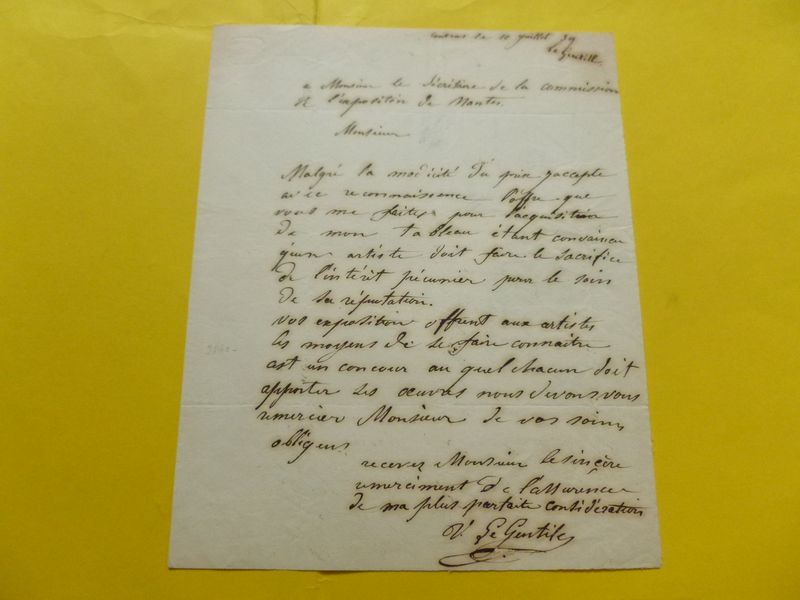 de 10 juillet 39
Le Gentile
a Monsieur le sécrétaire de la commission
de l'exposition de Nantes.
Monsieur
Malgré la modicité du prix j'accepte
avec reconnaissence l'offre que
vous me faites pour l'acquisition
de mon tableau étant convaincu
qu'un artiste doit faire le sacrifice
de l'intérêt pécunier pour le soin
de sa réputation.
vos exposition offrent aux artistes
les moyens de se faire connaitre
est un concour au quel chacun doit
apporter ses oeuvres nous devons vous
remercier Monsieur de vos soins
obligens
recevez Monsieur le sincère
remerciment de l'assurence
de ma plus parfaite considération
V. Le Gentile